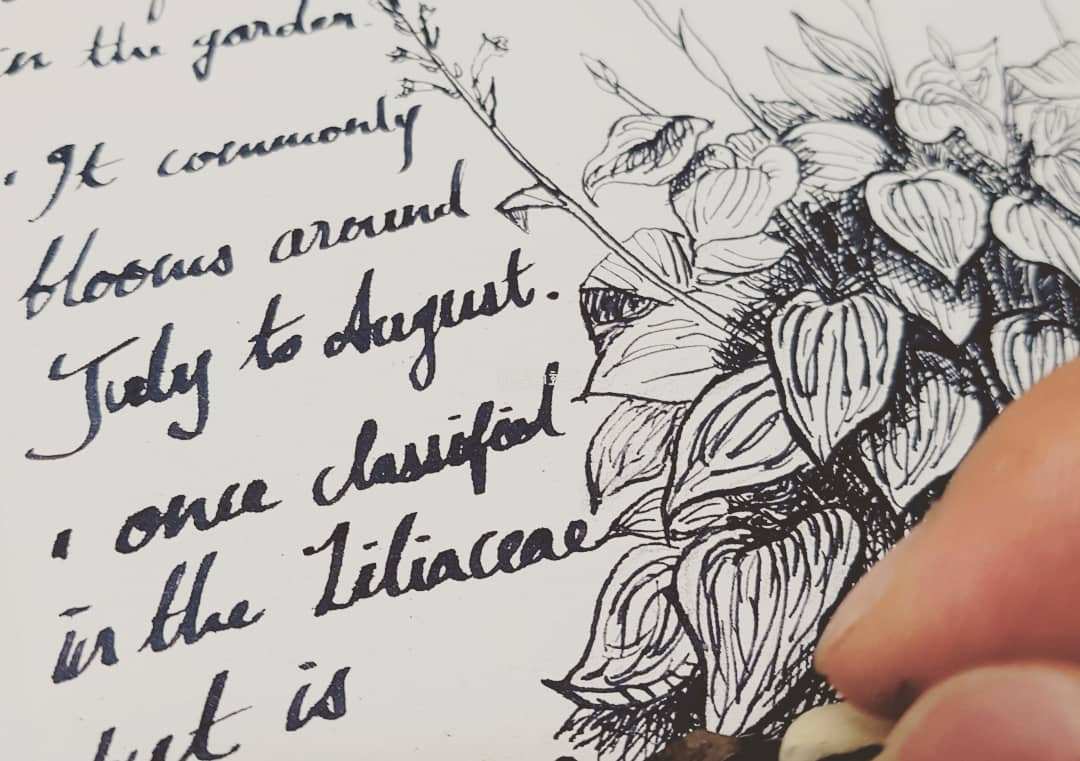 in the garden.
• It commonly
blooms around
July to August.
• once classified
in the Liliaceae
but is